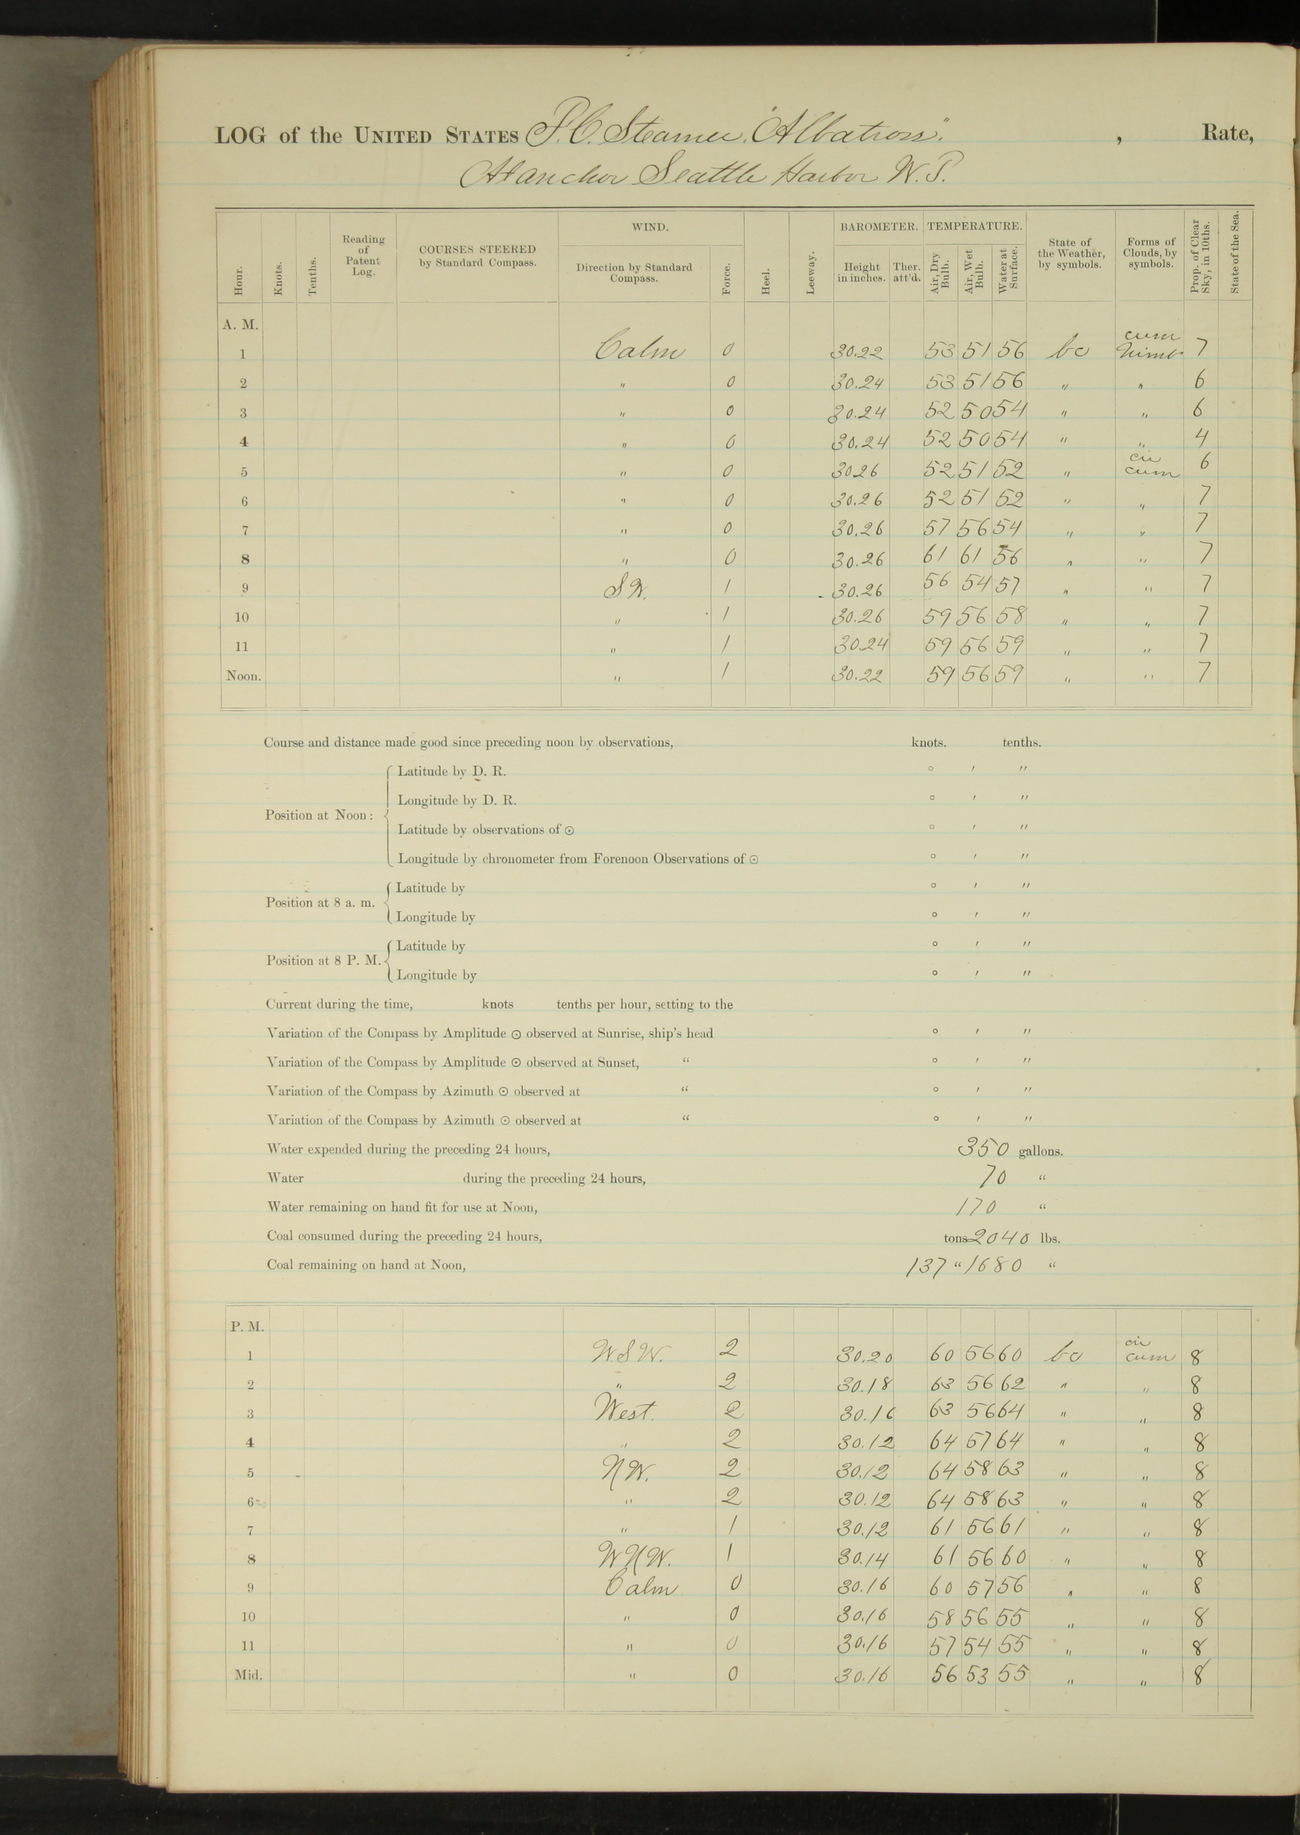 LOG of the UNITED STATES F. C. Steamer "Albatross". , Rate,
At anchor Seattle Harbor W. T.
Hour. Knots. Tenths. Reading of Patent Log. COURSES STEERED by Standard Compass. WIND. Direction by Standard Compass. Force. Heel. Leeway. BAROMETER. Height in inches. Ther. att'd. TEMPERATURE. Air, Dry Bulb. Air, Wet Bulb. Water at Surface. State of the Weather, by symbols. Forms of Clouds, by symbols. Prop. of Clear Sky, in 10ths. State of the Sea.
A. M.
1 Calm 0 30.22 53 51 56 bc cum nimb 7
2 " 0 30.24 53 51 56 " " 6
3 " 0 30.24 52 50 54 " " 6
4 " 0 30.24 52 50 54 " " 4
5 " 0 30.26 52 51 52 " cir cum 6
6 " 0 30.26 52 51 52 " " 7
7 " 0 30.26 57 56 54 " " 7
8 " 0 30.26 61 61 56 " " 7
9 SW. 1 30.26 56 54 57 " " 7
10 " 1 30.26 59 56 58 " " 7
11 " 1 30.24 59 56 59 " " 7
Noon. " 1 30.22 59 56 59 " " 7
Course and distance made good since preceding noon by observations, knots. tenths.
Latitude by D. R. ° ′ ″
Longitude by D. R. ° ′ ″
Position at Noon:
Latitude by observations of ☉ ° ′ ″
Longitude by chronometer from Forenoon Observations of ☉ ° ′ ″
Latitude by ° ′ ″
Position at 8 a. m.
Longitude by ° ′ ″
Latitude by ° ′ ″
Position at 8 P. M.
Longitude by ° ′ ″
Current during the time, knots tenths per hour, setting to the
Variation of the Compass by Amplitude ☉ observed at Sunrise, ship's head ° ′ ″
Variation of the Compass by Amplitude ☉ observed at Sunset, " ° ′ ″
Variation of the Compass by Azimuth ☉ observed at " ° ′ ″
Variation of the Compass by Azimuth ☉ observed at " ° ′ ″
Water expended during the preceding 24 hours, 350 gallons.
Water during the preceding 24 hours, 70 "
Water remaining on hand fit for use at Noon, 170 "
Coal consumed during the preceding 24 hours, tons 2040 lbs.
Coal remaining on hand at Noon, 137 " 1680 "
P. M.
1 WSW. 2 30.20 60 56 60 bc cir cum 8
2 " 2 30.18 63 56 62 " " 8
3 West. 2 30.16 63 56 64 " " 8
4 " 2 30.12 64 57 64 " " 8
5 NW. 2 30.12 64 58 63 " " 8
6 " 2 30.12 64 58 63 " " 8
7 " 1 30.12 61 56 61 " " 8
8 WNW. 1 30.14 61 56 60 " " 8
9 Calm 0 30.16 60 57 56 " " 8
10 " 0 30.16 58 56 55 " " 8
11 " 0 30.16 57 54 55 " " 8
Mid. " 0 30.16 56 53 55 " " 8